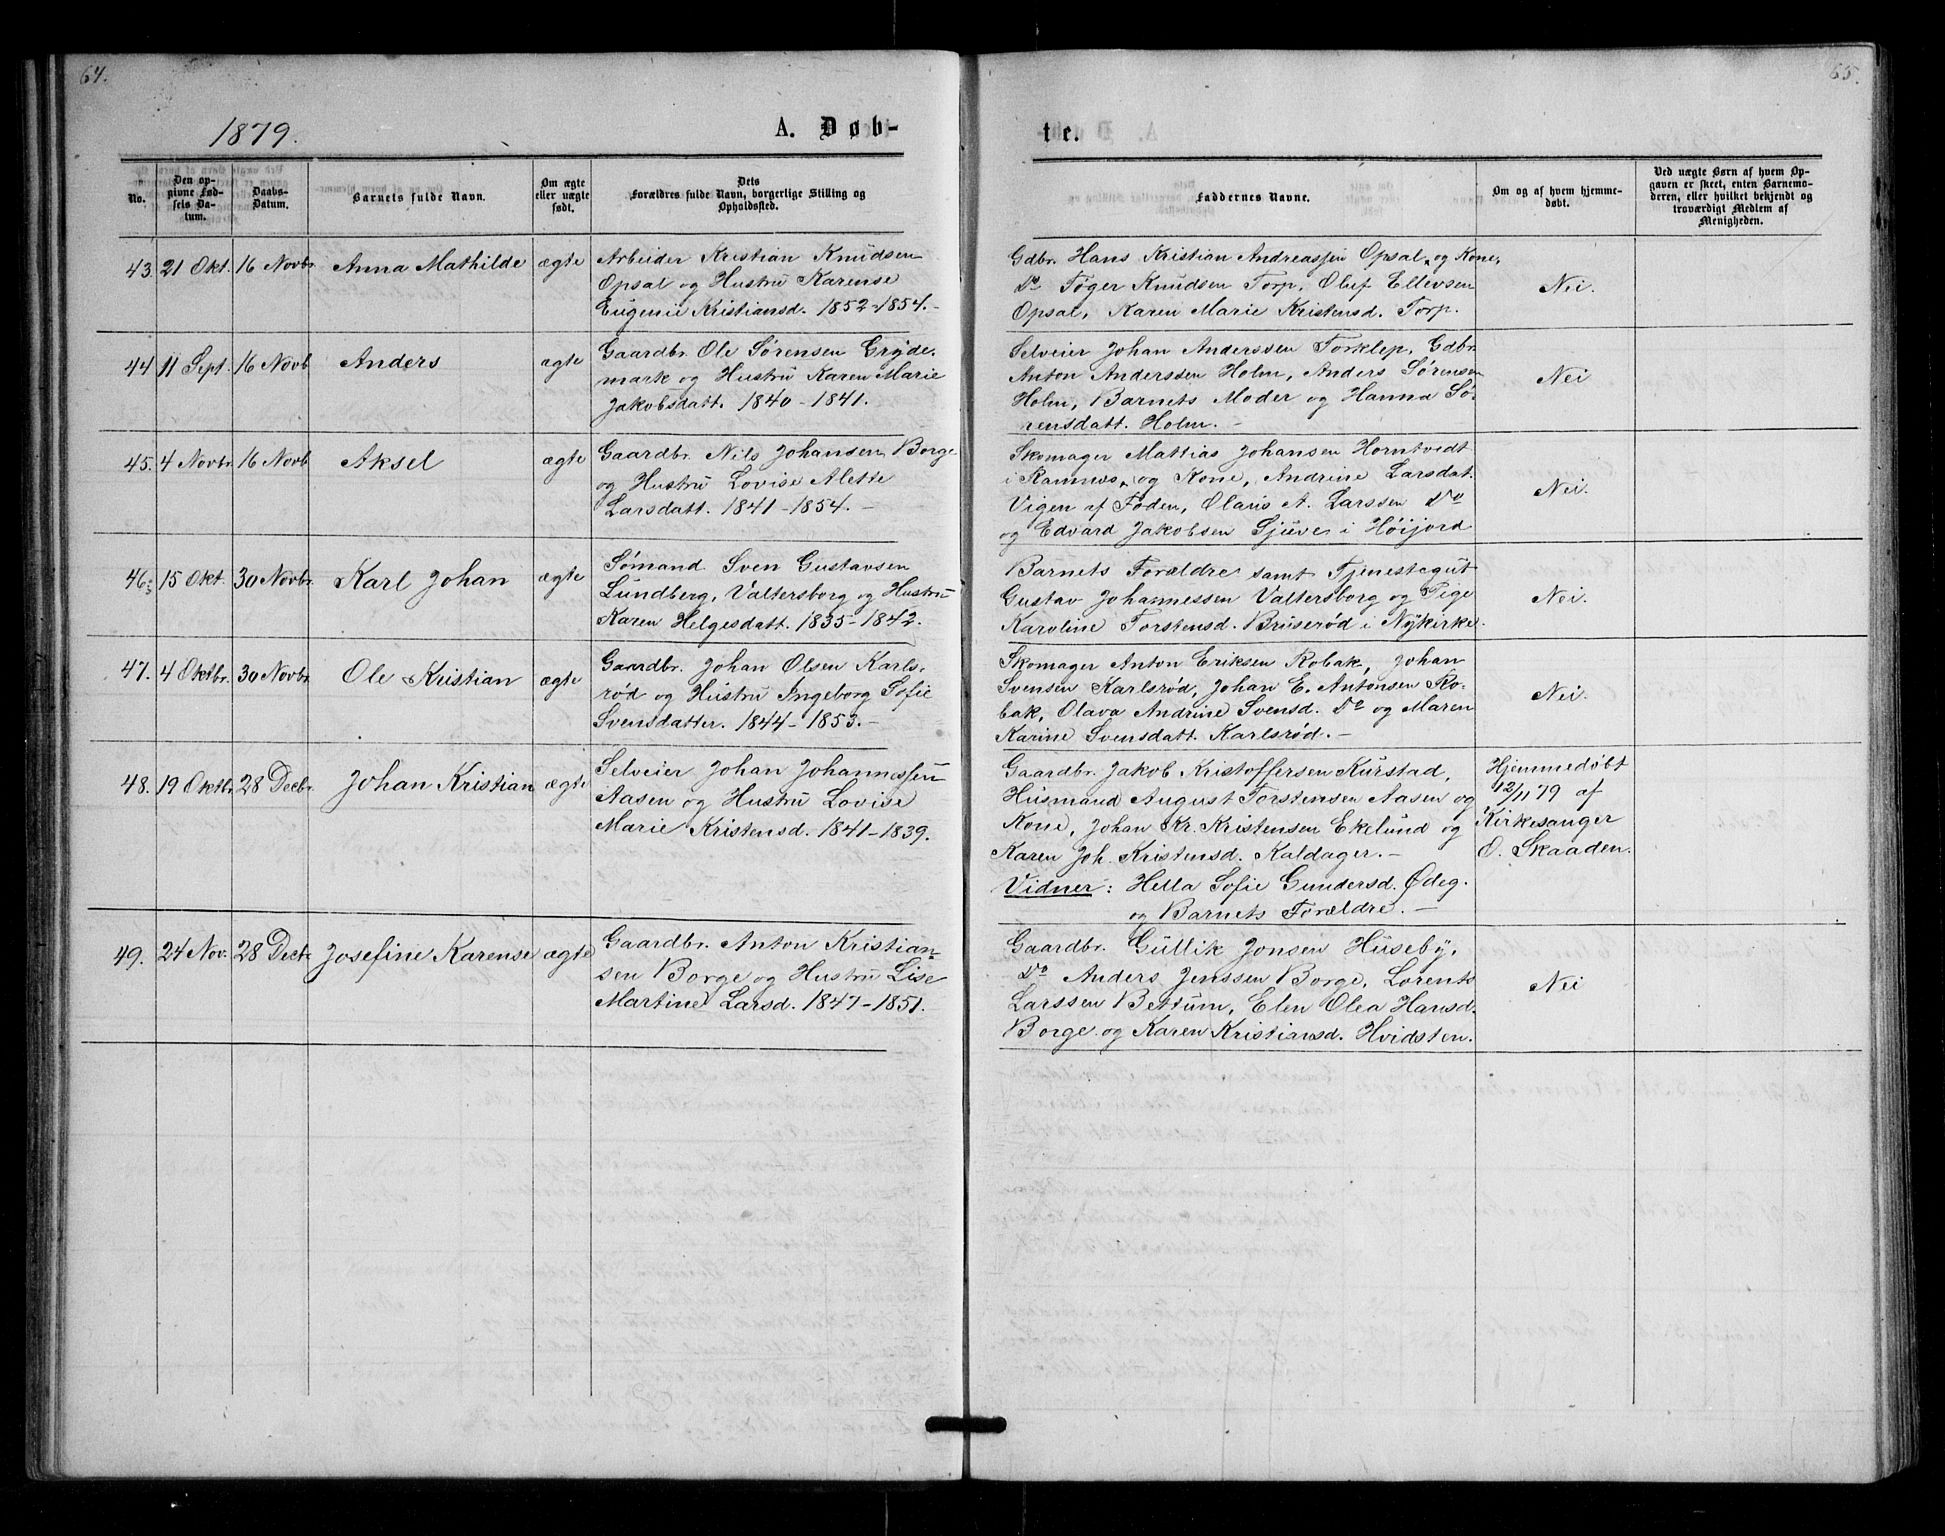 64.
1879.
A. Døb-
No.
Den op-
givne Fød-
sels Da-
tum.
Daabs-
Datum.
Barnets fulde Navn.
Om ægte
eller uægte
født.
Dets
Forældres fulde Navn, borgerlige Stilling og
Opholdssted.
43. 21 Okt. 16 Novbr. Anna Mathilde ægte
Arbeider Kristian Knudsen
Opsal og Hustru Karense
Eugenie Kristiansd. 1852-1854.-
44 11 Sept. 16 Novb Anders ægte
Gaardbr. Ole Sørensen Gryde-
mark og Hustru Karen Marie
Jakobsdatt. 1840-1841.
45. 4 Novbr. 16 Novb Aksel ægte
Gaardbr. Nils Johansen Borge
og Hustru Lovise Alette
Larsdatt. 1841-1854.-
46. 15 Okt. 30 Novbr. Karl Johan ægte
Sømand Sven Gustavsen
Lundberg, Valtersborg og Hustru
Karen Helgesdatt. 1835-1842.
47. 4 Oktbr. 30 Novbr. Ole Kristian ægte
Gaardbr. Johan Olsen Karls-
rød og Hustru Ingeborg Sofie
Svensdatter. 1844-1853.-
48. 19 Oktb. 28 Decbr. Johan Kristian ægte
Selveier Johan Johannessen
Aasen og Hustru Lovise
Marie Kristensd. 1841-1839.
49. 24 Nov. 28 Decbr. Josefine Karense ægte
Gaardbr. Anton Kristian-
sen Borge og Hustru Lise
Martine Larsd. 1847-1851.
65.
te.
Faddernes Navne.
Om og af hvem hjemme-
døbt.
Ved uægte Børn af hvem Op-
gaven er skeet, enten Barnemo-
deren, eller hvilket bekjendt og
troværdigt Medlem af
Menigheden.
Gdbr. Hans Kristian Andreassen Opsal, og Kone,
Do Tøger Knudsen Torp, Oluf Ellevsen
Opsal, Karen Marie Kristensd. Torp.
Nei.
Selveier Johan Anderssen Torklep, Gdbr.
Anton Anderssen Holm, Anders Sørensen
Holm, Barnets Moder og Hanna Sø-
rensdatt. Holm.-
Nei
Skomager Mattias Johansen Horntvedt
i Ramnæs, og Kone, Andrine Larsdat.
Vigen af Foden, Olaus A. Larssen Do
og Edvard Jakobsen Sjuve i Høijord
Nei.
Barnets Forældre samt Tjenestegut
Gustav Johannessen Valtersborg og Pige
Karoline Torstensd. Bruserød i Nykirke.
Nei.
Skomager Anton Eriksen Robak, Johan
Svensen Karlsrød, Johan E. Antonsen Ro-
bak, Olava Andrine Svensd. Do og Maren
Karine Svensdatt. Karlsrød.-
Nei.
Gaardbr. Jakob Kristoffersen Kurstad,
Husmand August Torstensen Aasen og
Kone, Johan Kr. Kristensen Ekelund og
Karen Joh. Kristensd. Kaldager.-
Vidner: Hella Sofie Gundersd. Ødeg.
og Barnets Forældre.-
Hjemmedøbt
12/11 79 af
Kirkesanger
O. Skaaden.
Gaardbr. Gullik Jonsen Huseby,
Do Anders Jenssen Borge, Lorents
Larssen Bettum, Elen Olea Hansd.
Borge og Karen Kristiansd. Hvidsten.
Nei